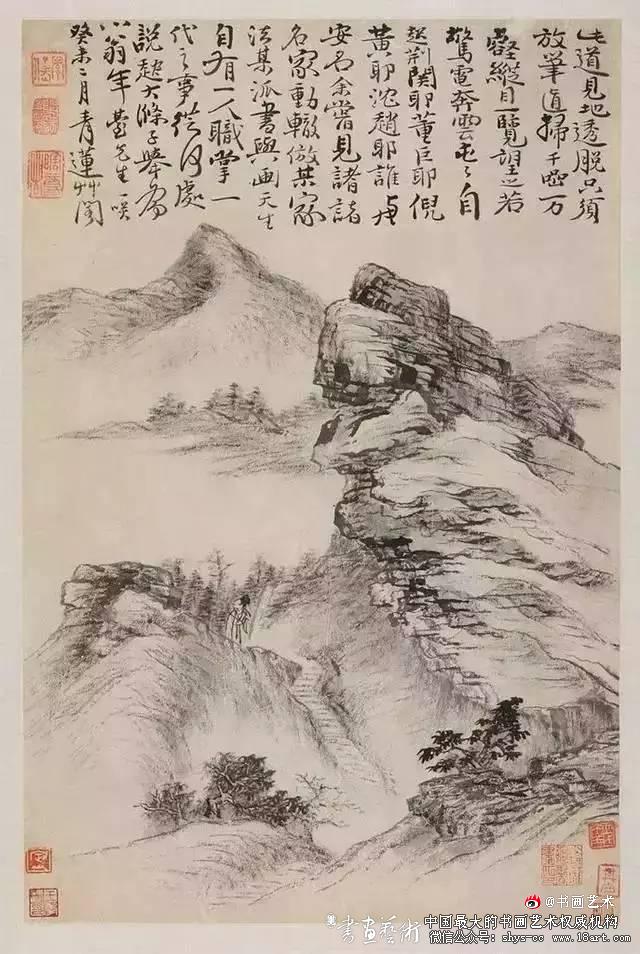 此道見地透脫只須
放筆直掃千巖万
壑縱目一覽望之若
驚電奔雲屯〻自
起荆関耶董巨耶倪
黄耶沈趙耶誰與
安名余嘗見諸諸
名家動輒倣某家
法某派書與画天生
自有一人職掌一
代之事從何處
說起大滌子舉為
翁年臺先生一咲
癸未二月青蓮艸閣
@书画艺术
書畫藝術
中国最大的书画艺术权威机构
微信公众号: shys-cc www.18art.com